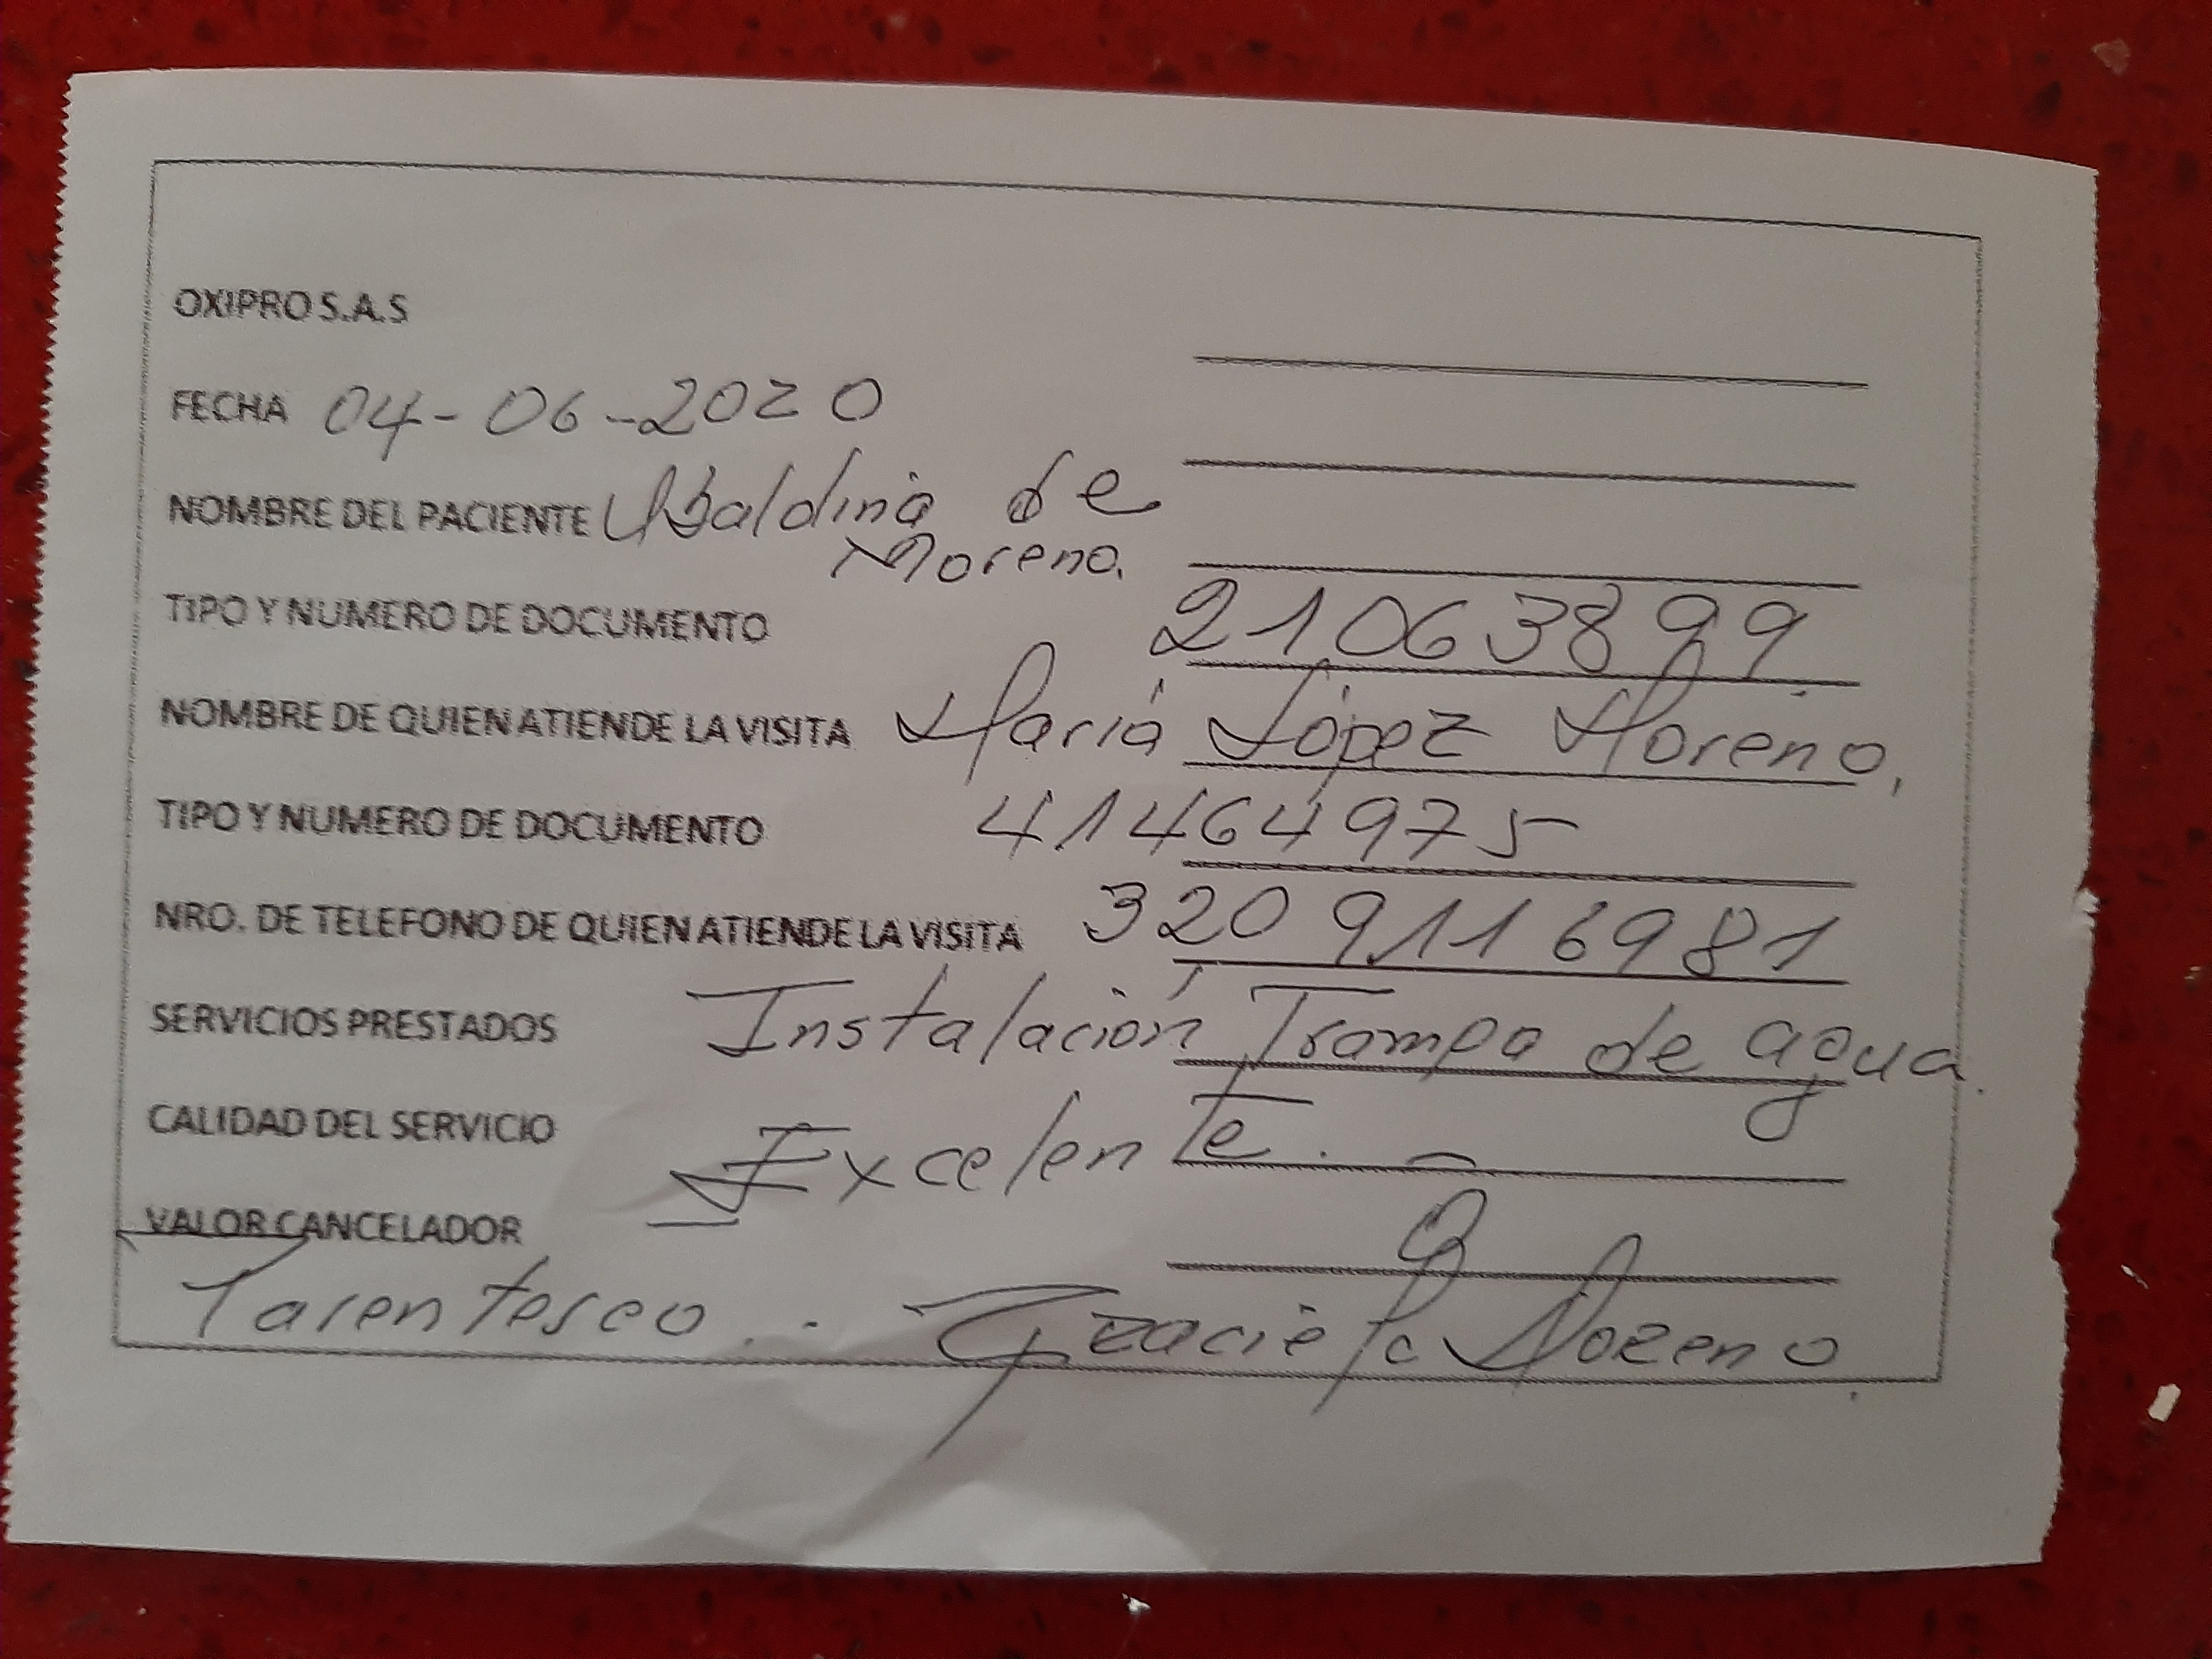 OXIPRO S.A.S
FECHA 04-06-2020
NOMBRE DEL PACIENTE Ubaldina de
Moreno.
TIPO Y NUMERO DE DOCUMENTO 21063899
NOMBRE DE QUIEN ATIENDE LA VISITA María López Moreno,
TIPO Y NUMERO DE DOCUMENTO 41464975
NRO. DE TELEFONO DE QUIEN ATIENDE LA VISITA 320 911 6981
SERVICIOS PRESTADOS Instalación Trampa de agua.
CALIDAD DEL SERVICIO Excelente.
VALOR CANCELADOR
Parentesco.. Graciela Moreno.